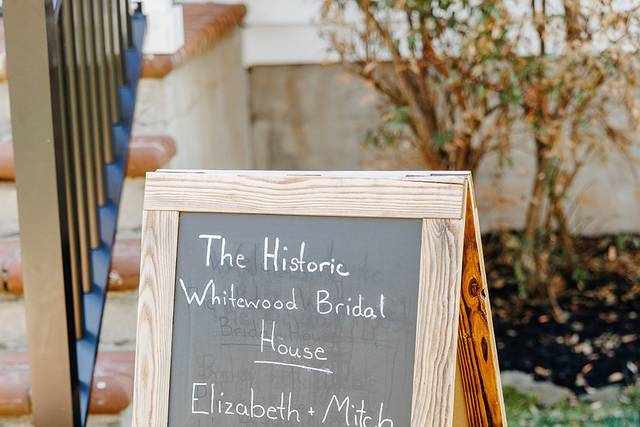 The Historic
Whitewood Bridal
House
Elizabeth + Mitch